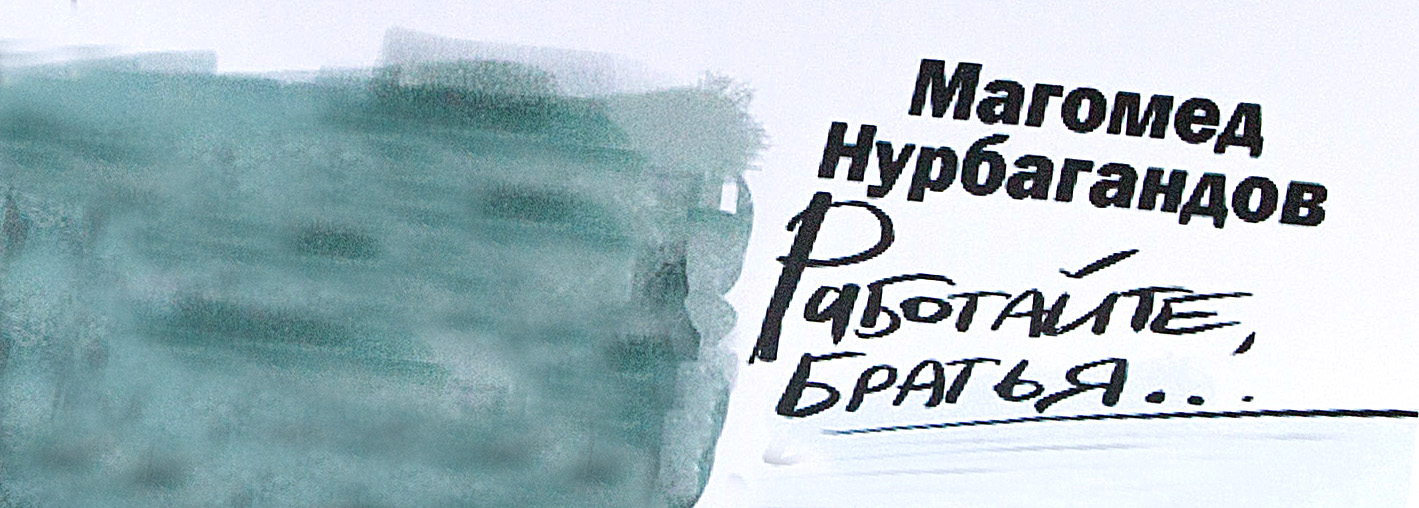 Магомед
Нурбагандов
Работайте,
БРАТЬЯ...